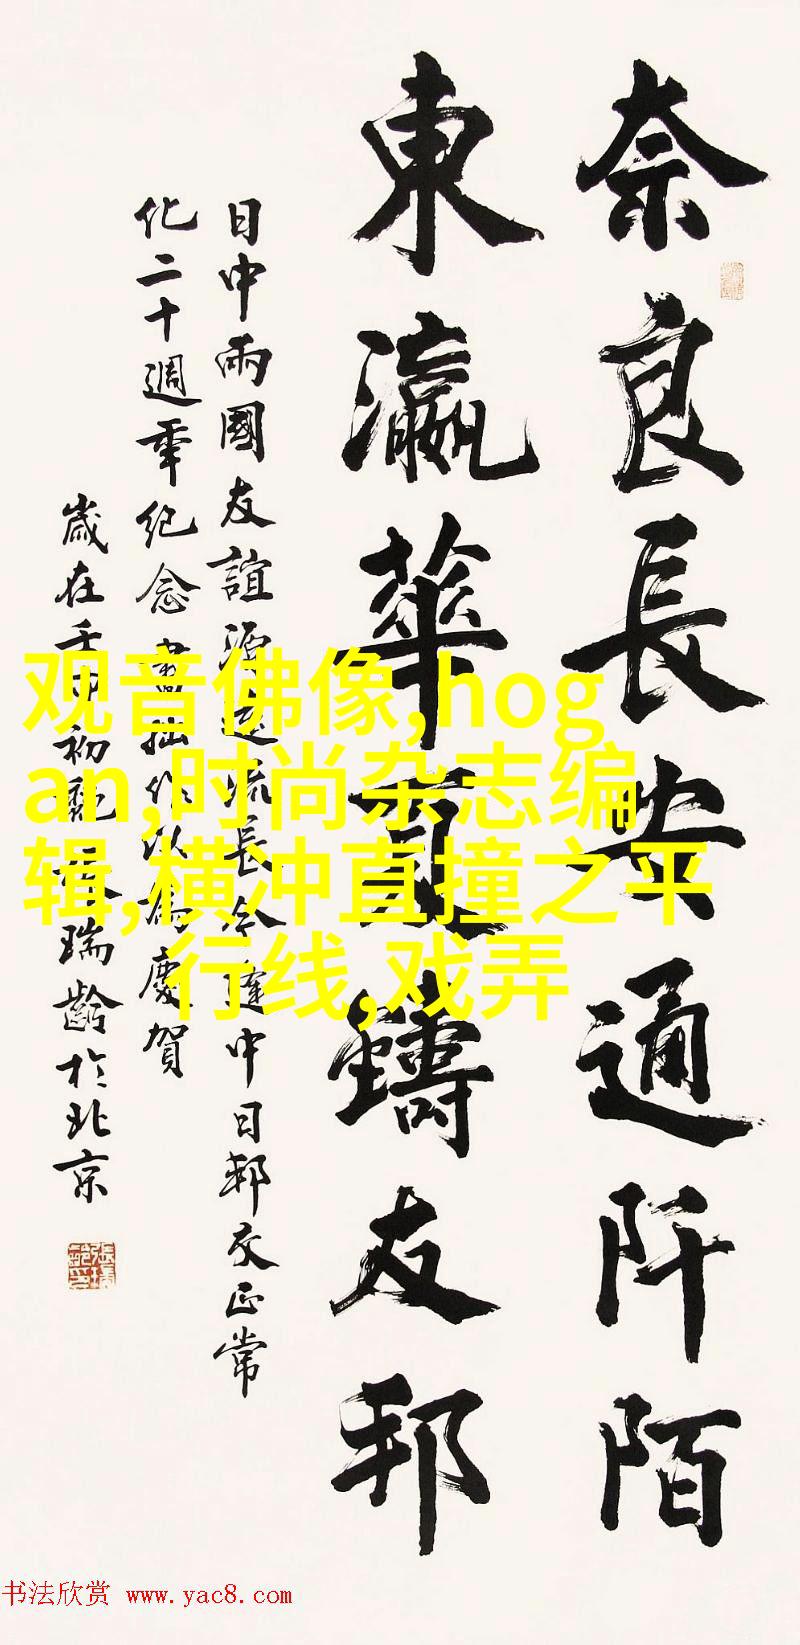 奈良長安通阡陌
東瀛華夏鑄友邦
日中兩國友誼源遠流長今逢中日邦交正常
化二十週年紀念書拙作以為慶賀
歲在壬申初 瑞齡於北京
观音佛像,hog
an,时尚杂志编
辑,横冲直撞之平
行线,戏弄
书法欣赏 www.yac8.com